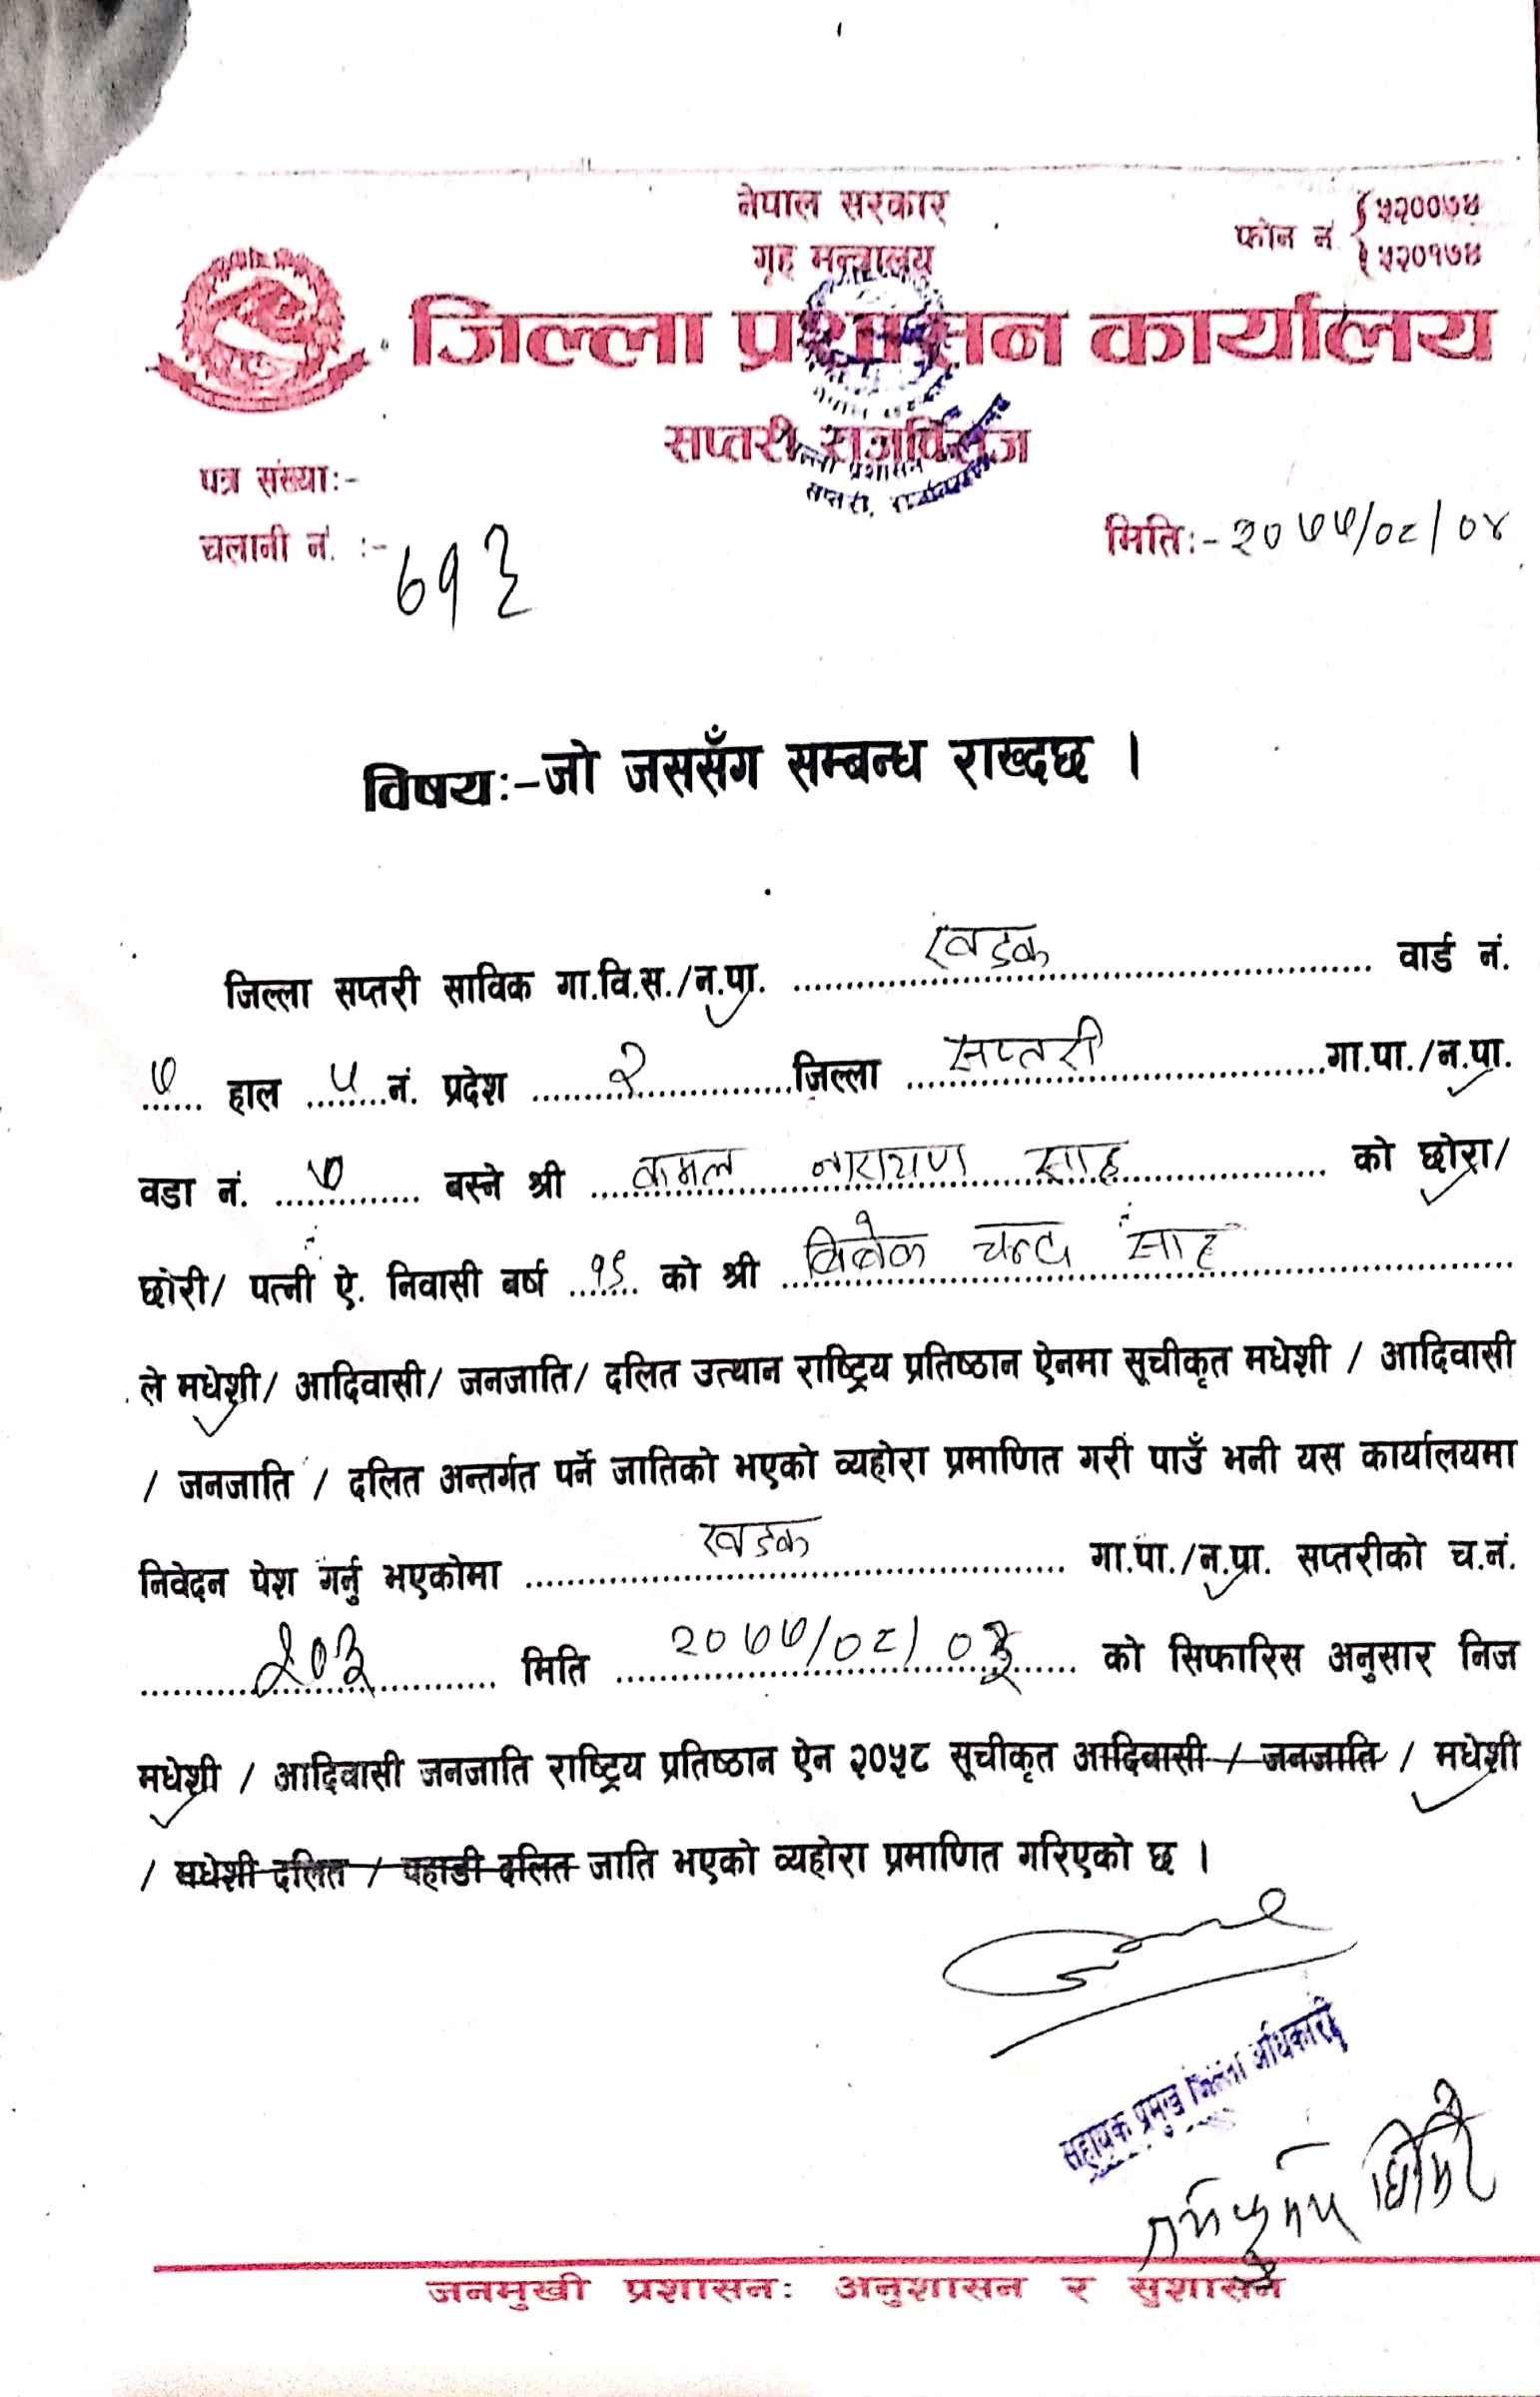 नेपाल सरकार
गृह मन्त्रालय
फोन नं ५२००७४
५२०१७४
जिल्ला प्रशासन कार्यालय
सप्तरी, राजविराज
पत्र संख्याः-
चलानी नं. :- ७१३
मितिः- २०७७/०८/०४
विषयः-जो जससँग सम्बन्ध राख्दछ ।
जिल्ला सप्तरी साविक गा.वि.स./न.पा. खडक वार्ड नं.
७ हाल ५ नं. प्रदेश २ जिल्ला सप्तरी गा.पा./न.पा.
वडा नं. ७ बस्ने श्री कमल नारायण साह को छोरा/
छोरी/ पत्नी ऐ. निवासी बर्ष १९ को श्री बिबेक चन्द्र साह
ले मधेशी/ आदिवासी/ जनजाति/ दलित उत्थान राष्ट्रिय प्रतिष्ठान ऐनमा सूचीकृत मधेशी / आदिवासी
/ जनजाति / दलित अन्तर्गत पर्ने जातिको भएको व्यहोरा प्रमाणित गरी पाउँ भनी यस कार्यालयमा
निवेदन पेश गर्नु भएकोमा खडक गा.पा./न.पा. सप्तरीको च.नं.
४०३ मिति २०७७/०८/०३ को सिफारिस अनुसार निज
मधेशी / आदिवासी जनजाति राष्ट्रिय प्रतिष्ठान ऐन २०५८ सूचीकृत आदिवासी / जनजाति / मधेशी
/ मधेशी दलित / पहाडी दलित जाति भएको व्यहोरा प्रमाणित गरिएको छ ।
सहायक प्रमुख जिल्ला अधिकारी
जनमुखी प्रशासनः अनुशासन र सुशासन